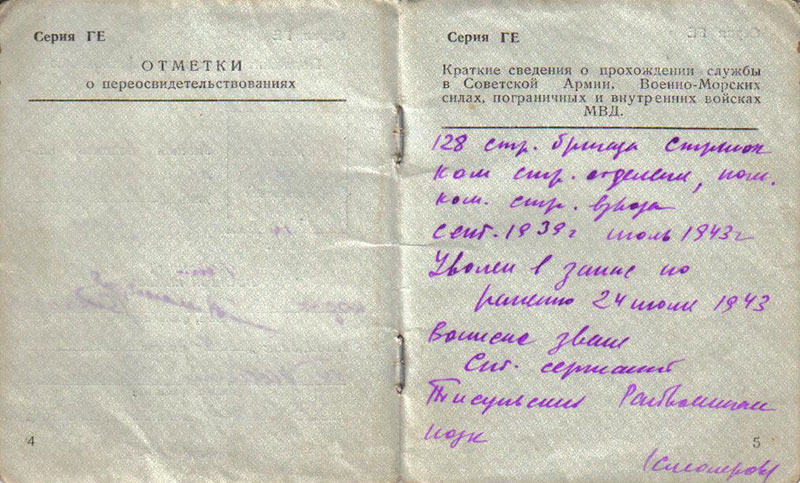 Серия ГЕ
ОТМЕТКИ
о переосвидетельствованиях
4
Серия ГЕ
Краткие сведения о прохождении службы
в Советской Армии, Военно-Морских
силах, пограничных и внутренних войсках
МВД.
128 стр. бригада Стрелок
Ком стр. отделени, пом.
ком. стр. взвода
Сент. 1939 г июль 1943 г
Уволен в запас по
ранению 24 июля 1943
Воинское звание
Ст. сержант
Тисульским Райвоенком
5